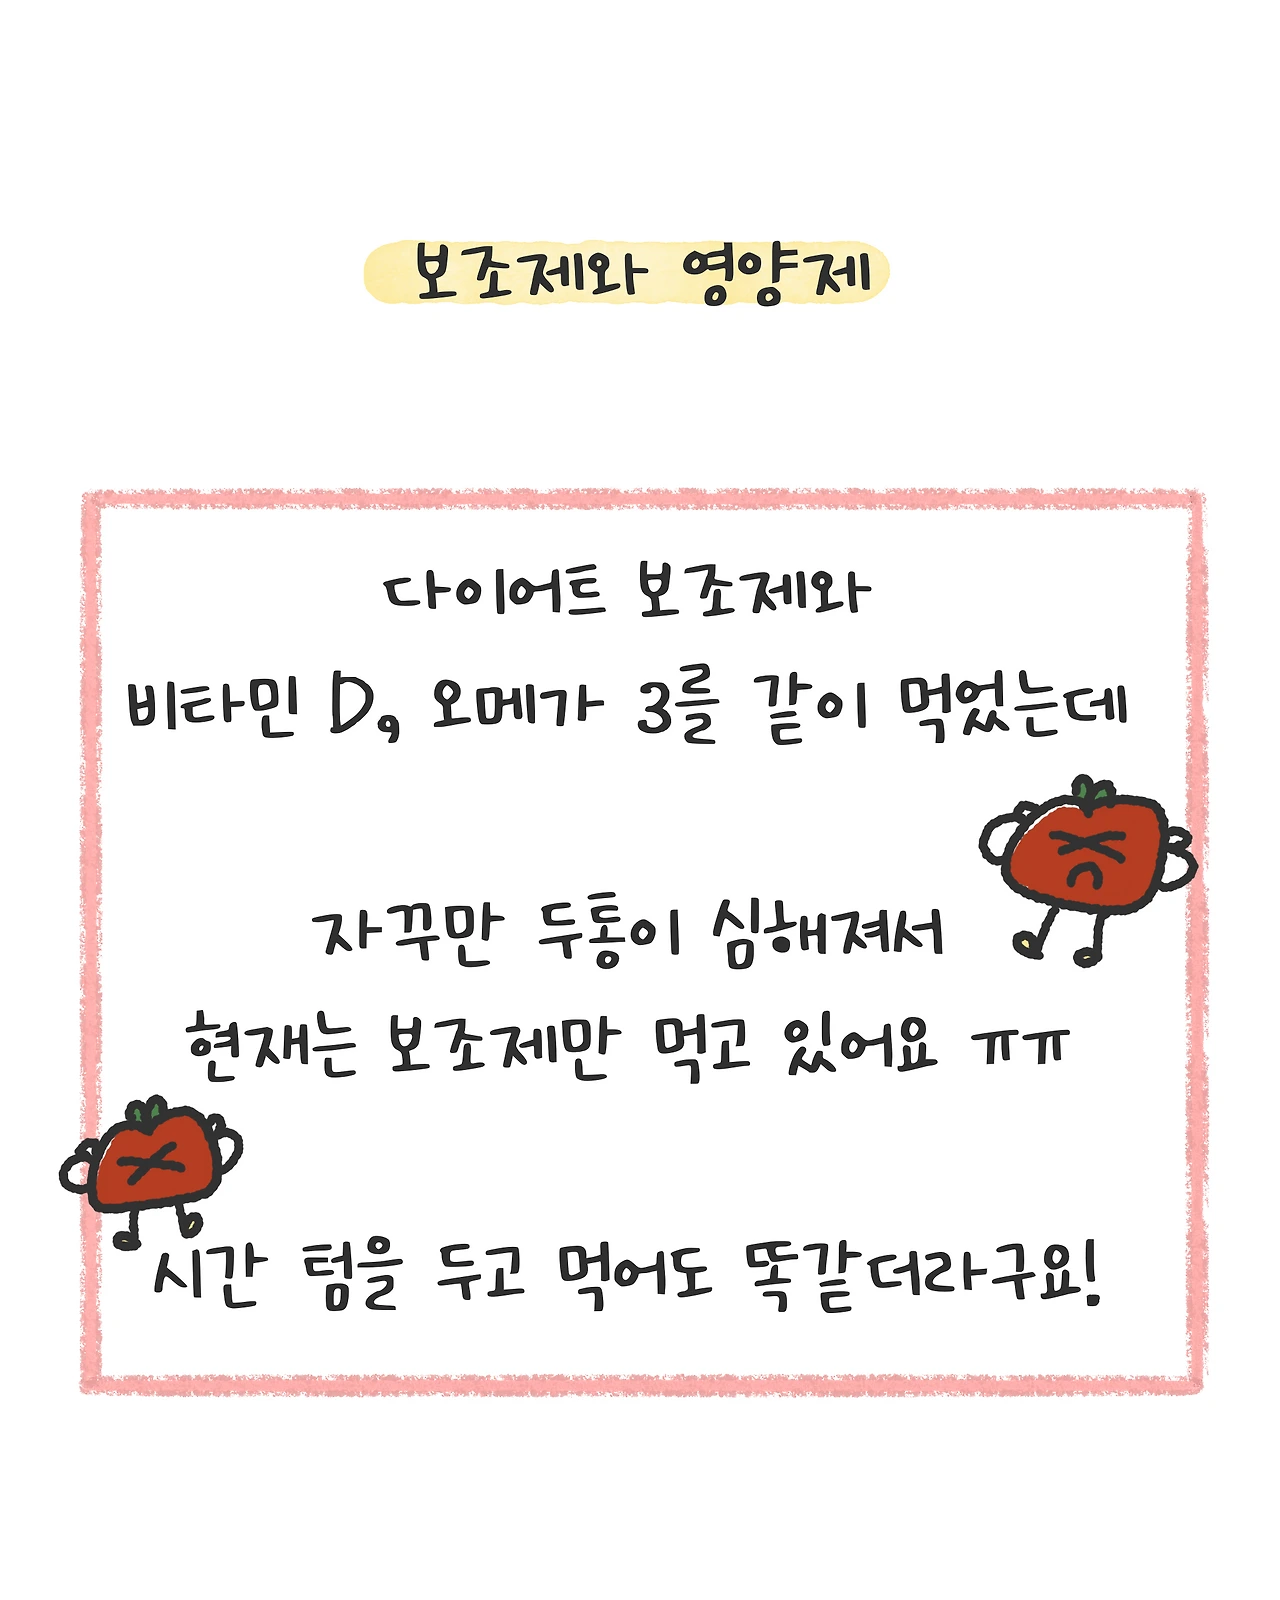 보조제와 영양제
다이어트 보조제와
비타민 D, 오메가 3를 같이 먹었는데
자꾸만 두통이 심해져서
현재는 보조제만 먹고 있어요 ㅠㅠ
시간 텀을 두고 먹어도 똑같더라구요!